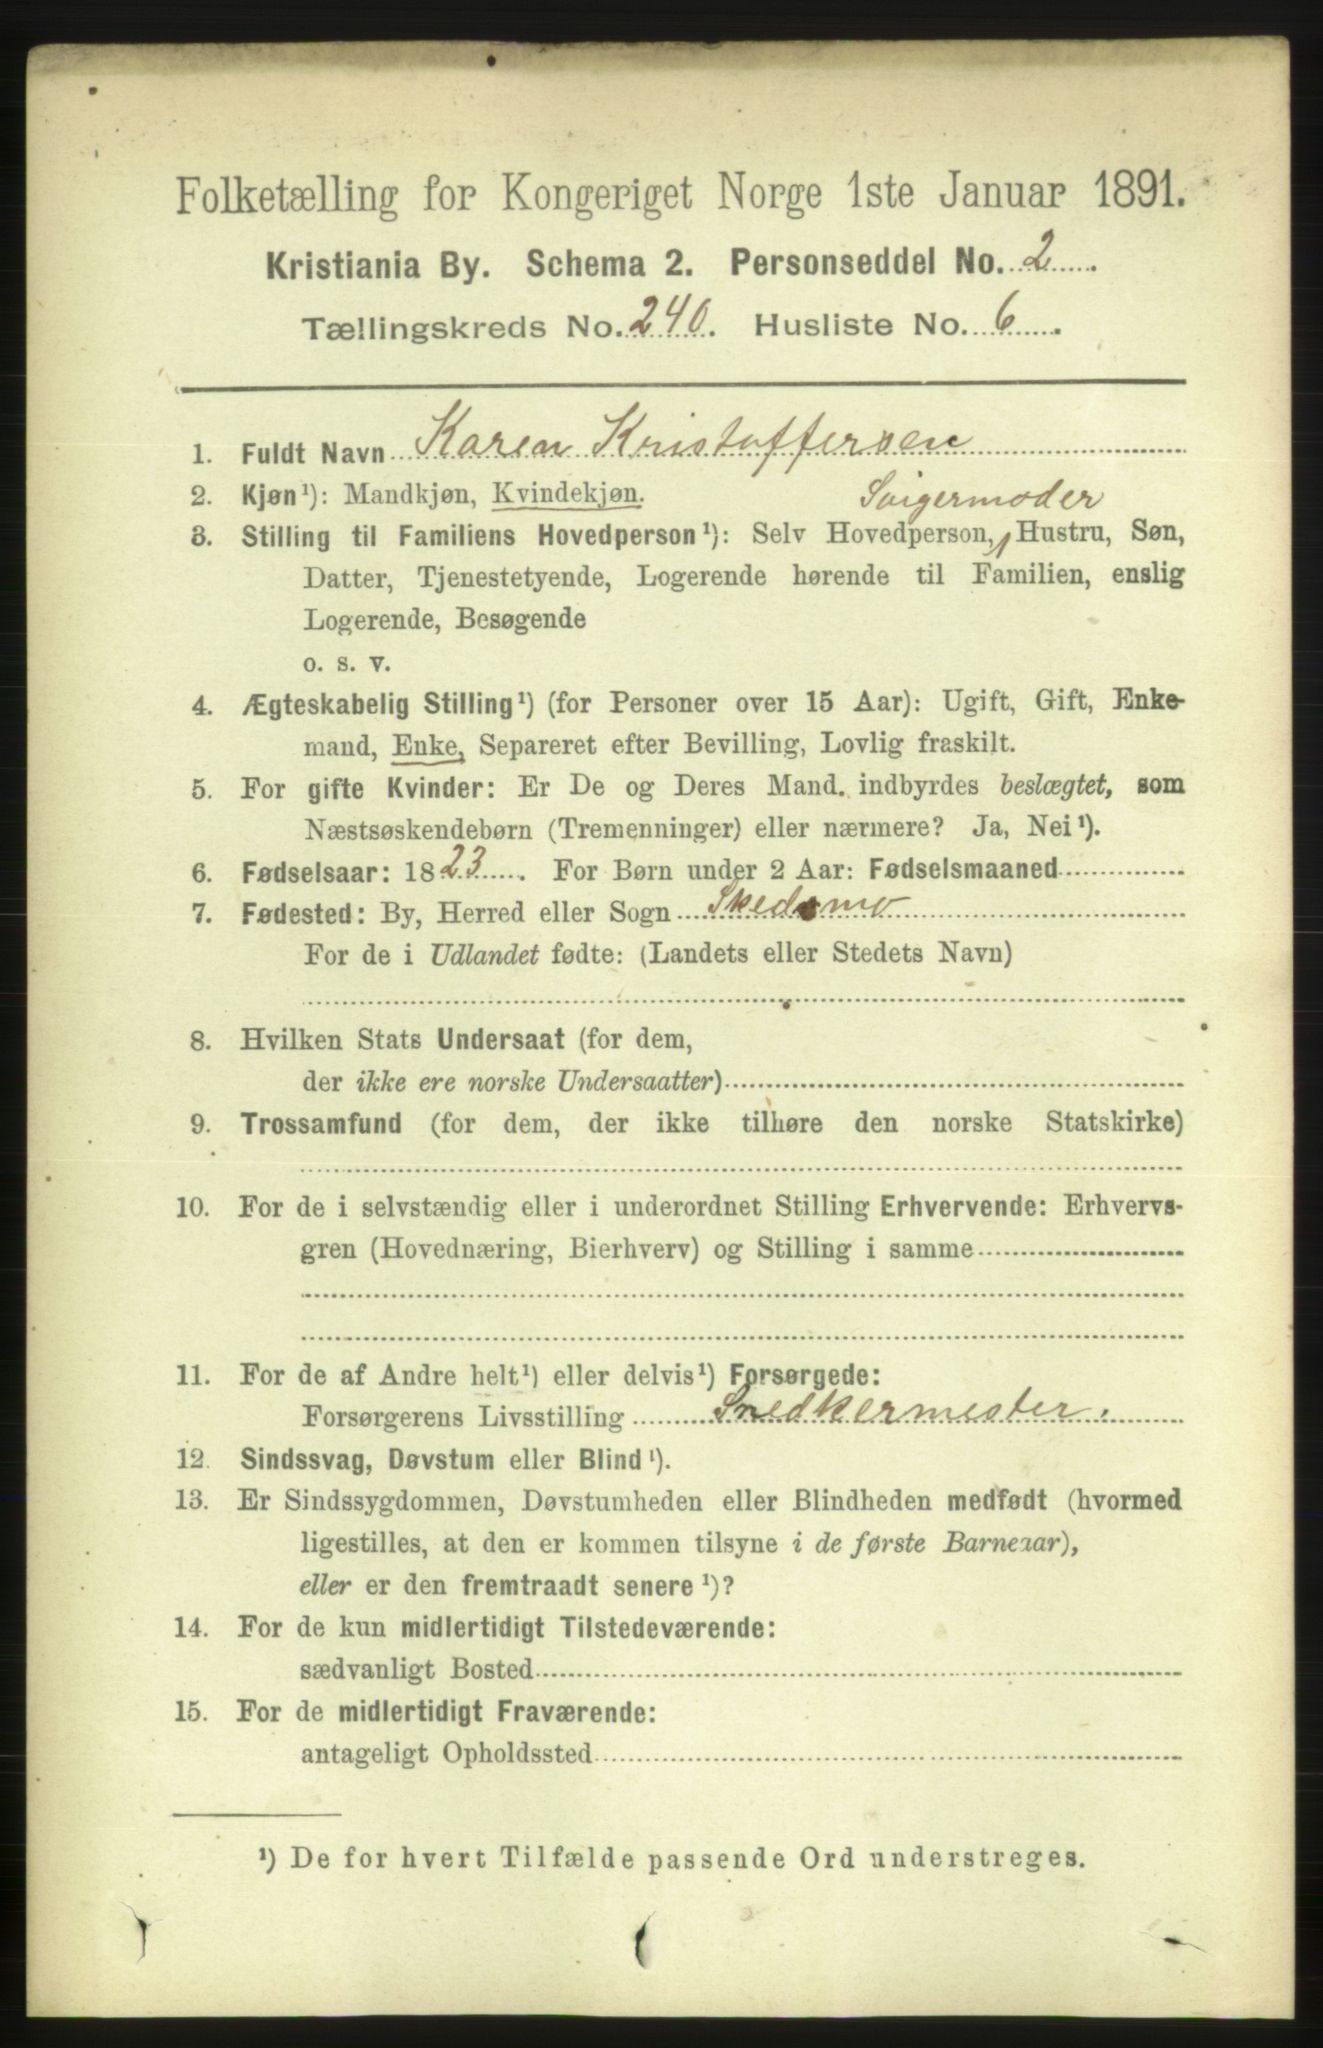 Folketælling for Kongeriget Norge 1ste Januar 1891.
Kristiania By. Schema 2. Personseddel No. 2.
Tællingskreds No. 240. Husliste No. 6.
1. Fuldt Navn Karen Kristoffersen
2. Kjøn¹): Mandkjøn, Kvindekjøn.
Svigermoder
3. Stilling til Familiens Hovedperson¹): Selv Hovedperson, Hustru, Søn,
Datter, Tjenestetyende, Logerende hørende til Familien, enslig
Logerende, Besøgende
o. s. v.
4. Ægteskabelig Stilling¹) (for Personer over 15 Aar): Ugift, Gift, Enke-
mand, Enke, Separeret efter Bevilling, Lovlig fraskilt.
5. For gifte Kvinder: Er De og Deres Mand. indbyrdes beslægtet, som
Næstsøskendebørn (Tremenninger) eller nærmere? Ja, Nei¹).
6. Fødselsaar: 1823. For Børn under 2 Aar: Fødselsmaaned
7. Fødested: By, Herred eller Sogn Skedsmo
For de i Udlandet fødte: (Landets eller Stedets Navn)
8. Hvilken Stats Undersaat (for dem,
der ikke ere norske Undersaatter)
9. Trossamfund (for dem, der ikke tilhøre den norske Statskirke)
10. For de i selvstændig eller i underordnet Stilling Erhvervende: Erhvervs-
gren (Hovednæring, Bierhverv) og Stilling i samme
11. For de af Andre helt¹) eller delvis¹) Forsørgede:
Forsørgerens Livsstilling Snedkermester.
12. Sindssvag, Døvstum eller Blind¹).
13. Er Sindssygdommen, Døvstumheden eller Blindheden medfødt (hvormed
ligestilles, at den er kommen tilsyne i de første Barneaar),
eller er den fremtraadt senere¹)?
14. For de kun midlertidigt Tilstedeværende:
sædvanligt Bosted
15. For de midlertidigt Fraværende:
antageligt Opholdssted
¹) De for hvert Tilfælde passende Ord understreges.